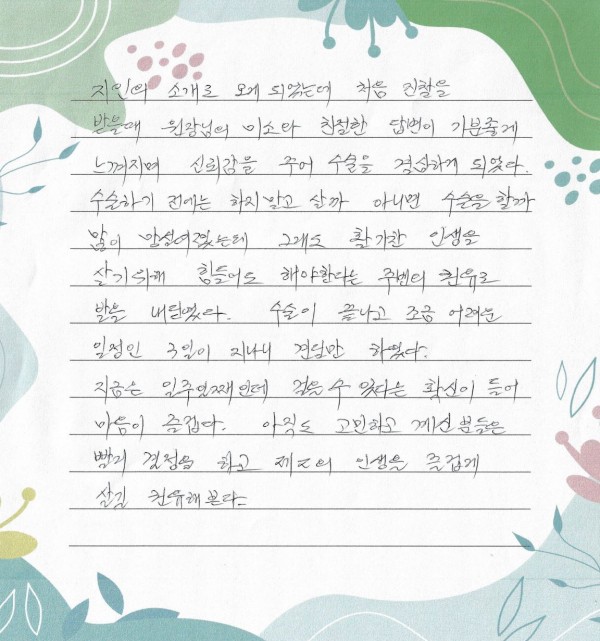 지인의 소개로 오게 되었는데 처음 진찰을
받을때 원장님의 미소와 친절한 답변이 기분좋게
느껴지며 신뢰감을 주어 수술을 결심하게 되었다.
수술하기 전에는 하지말고 살까 아니면 수술을 할까
많이 망설여졌는데 그래도 활기찬 인생을
살기위해 힘들어도 해야한다는 주변의 권유로
발을 내딛었다. 수술이 끝나고 조금 어려운
일정인 3일이 지나니 견딜만 하였다.
지금은 일주일째인데 걸을수 있다는 확신이 들어
마음이 즐겁다. 아직도 고민하고 계신분들은
빨리 결정을 하고 제2의 인생을 즐겁게
살길 권유해본다.